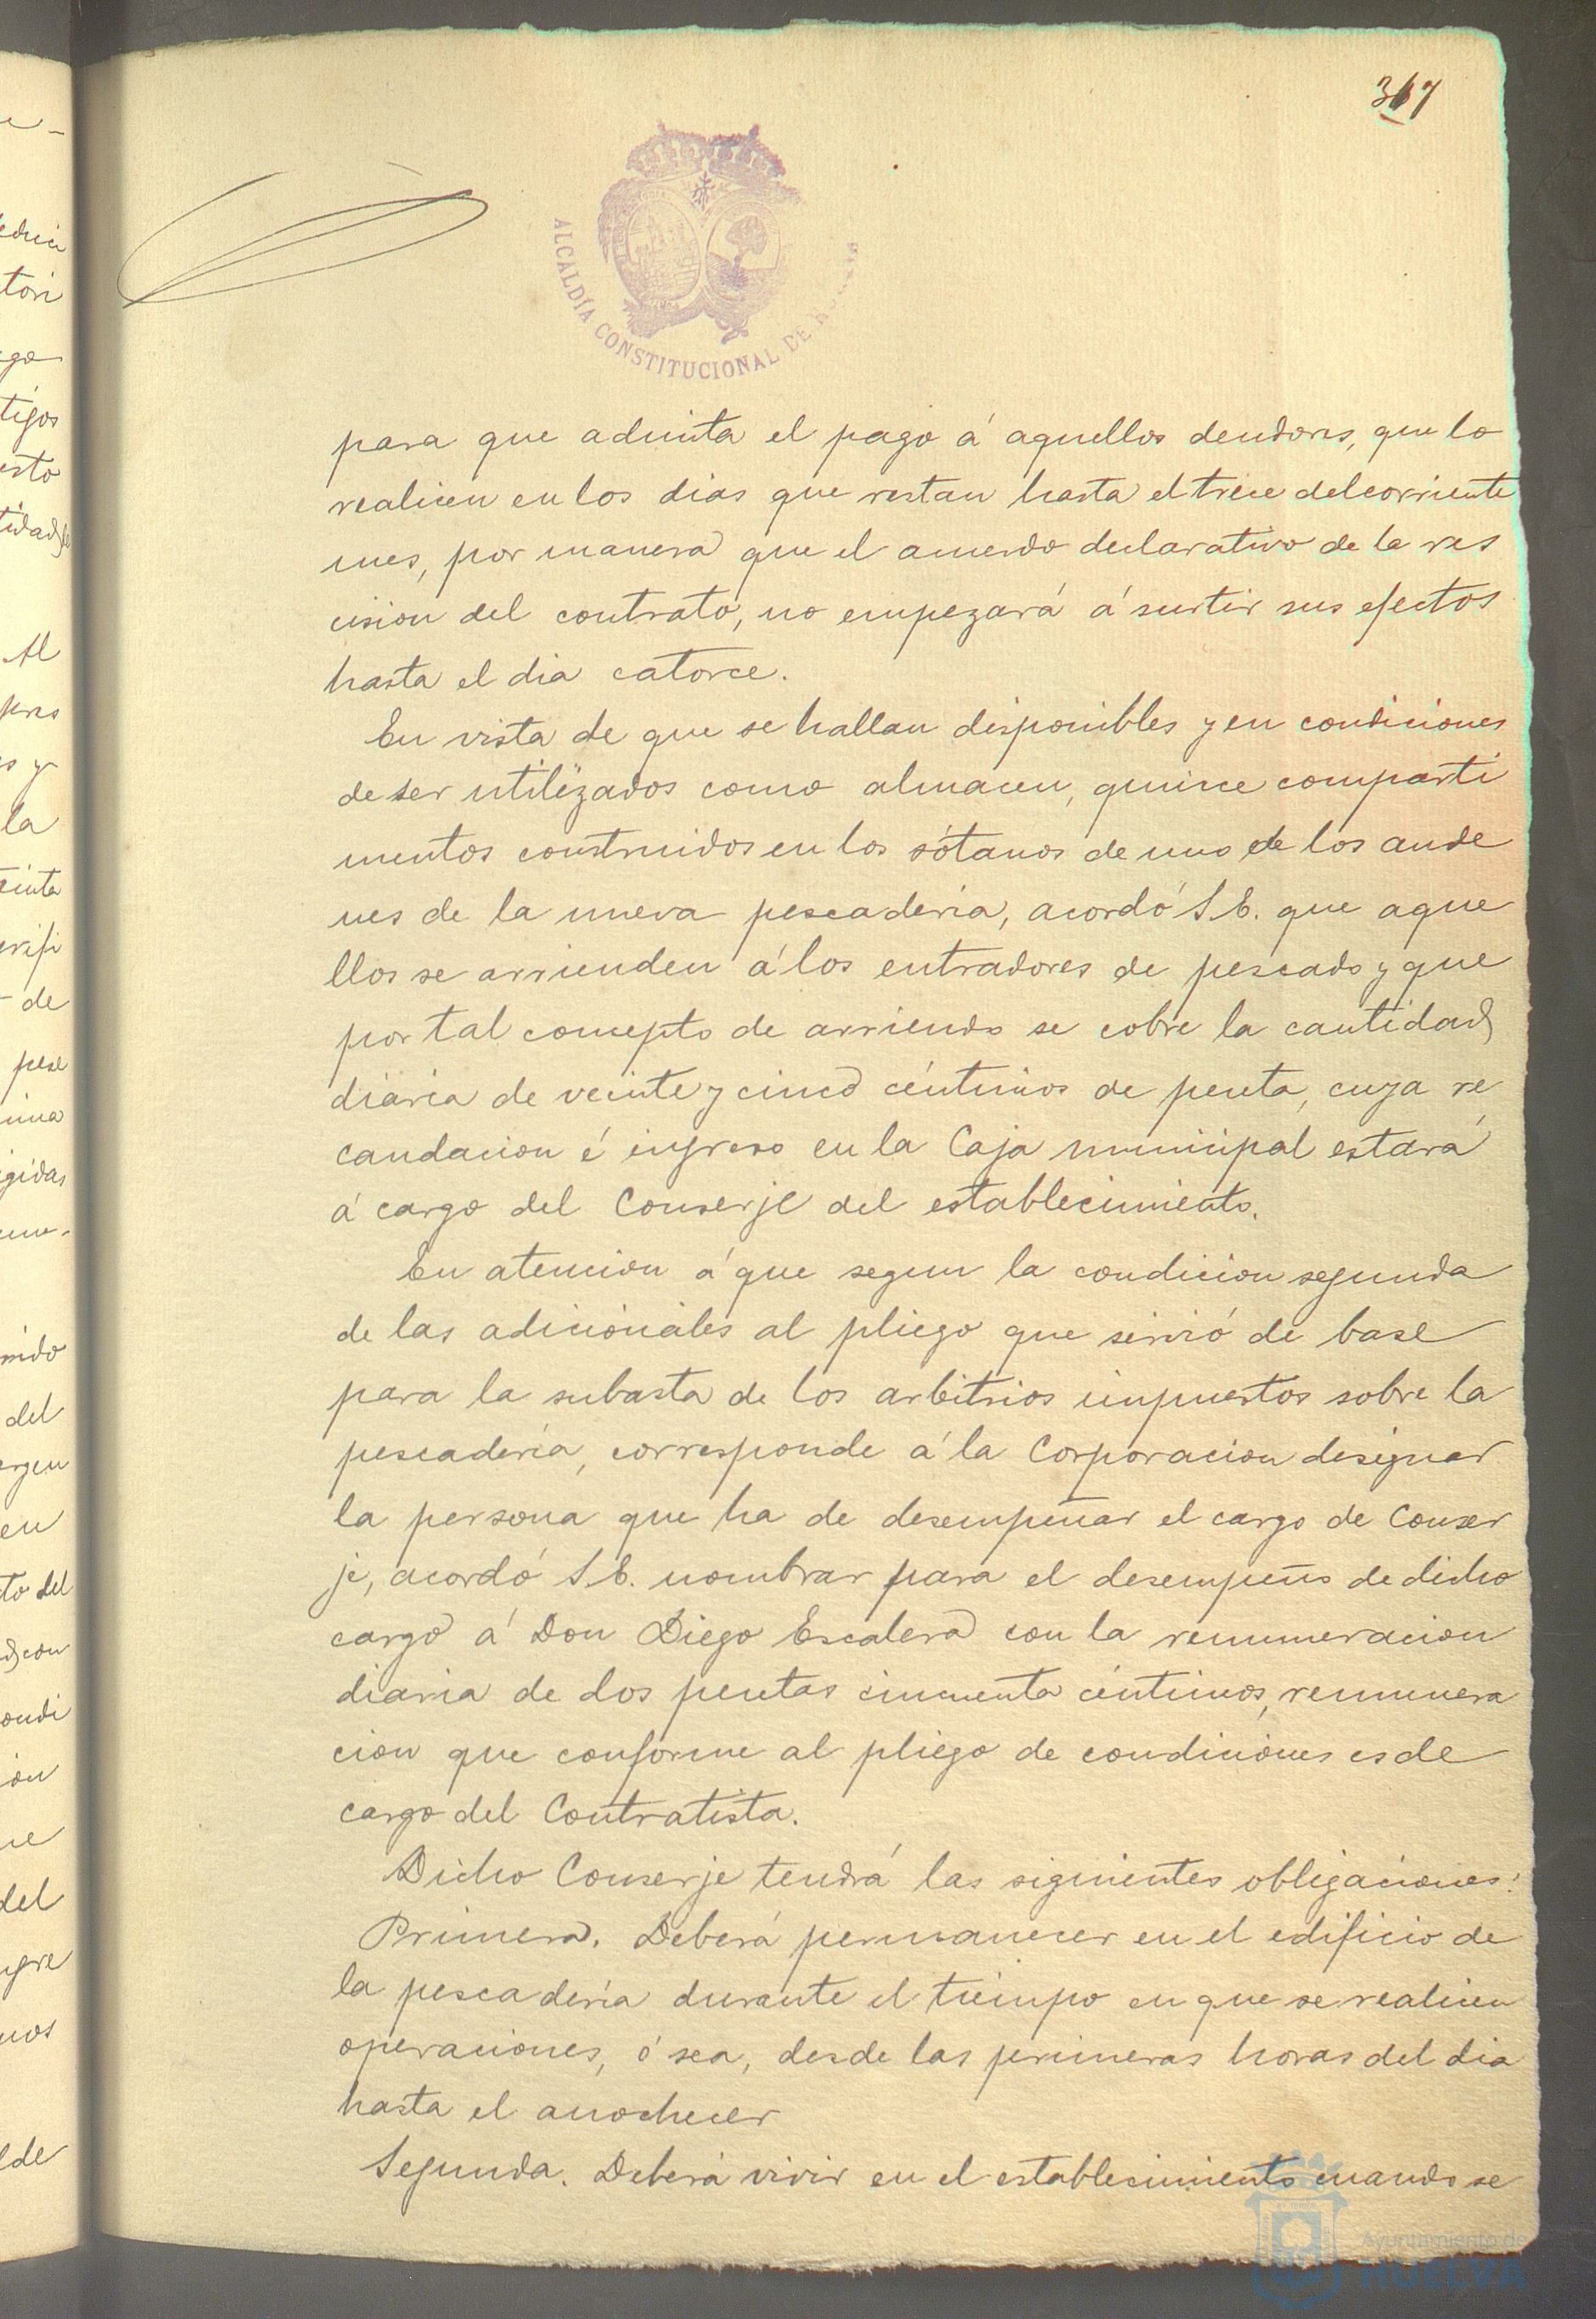 317
ALCALDÍA CONSTITUCIONAL DE HUELVA
para que admita el pago á aquellos deudores, que lo
realicen en los dias que restan hasta el trece del corriente
mes, por manera que el acuerdo declarativo de la res
cision del contrato, no empezará á surtir sus efectos
hasta el dia catorce.
En vista de que se hallan disponibles y en condiciones
de ser utilizados como almacen, quince comparti
mentos construidos en los sótanos de uno de los ande
nes de la nueva pescadería, acordó S.E. que aque
llos se arrienden á los entradores de pescado y que
por tal concepto de arriendo se cobre la cantidad
diaria de veinte y cinco céntimos de peseta, cuya re
caudacion é ingreso en la Caja municipal estará
á cargo del Conserje del establecimiento.
En atencion á que segun la condicion segunda
de las adicionales al pliego que sirvió de base
para la subasta de los arbitrios impuestos sobre la
pescadería, corresponde á la Corporacion designar
la persona que ha de desempeñar el cargo de Conser
je, acordó S.E. nombrar para el desempeño de dicho
cargo á Don Diego Escalera con la remuneracion
diaria de dos pesetas cincuenta céntimos, remunera
cion que conforme al pliego de condiciones es de
cargo del Contratista.
Dicho Conserje tendrá las siguientes obligaciones:
Primera. Deberá permanecer en el edificio de
la pescadería durante el tiempo en que se realicen
operaciones, ó sea, desde las primeras horas del dia
hasta el anochecer
Segunda. Deberá vivir en el establecimiento cuando se
Ayuntamiento de
HUELVA